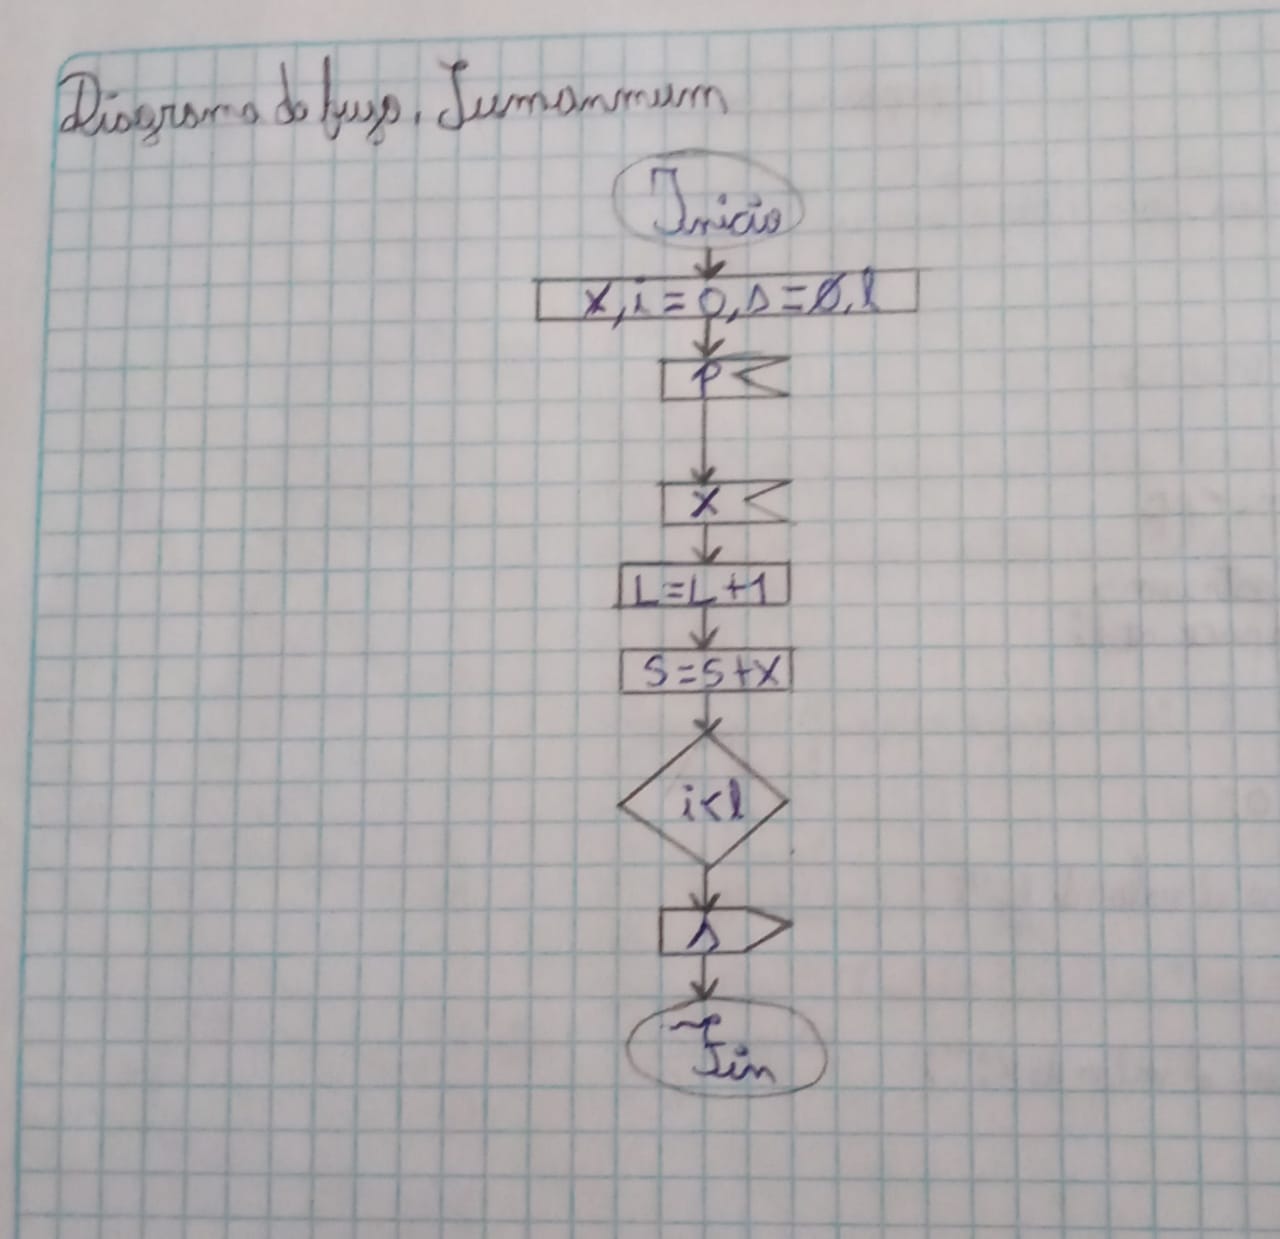 Diagrama de flujo. Sumanmum
Inicio
X, i = 0, s = 0, l
P
X
L = L + 1
S = S + X
i < l
s
Fin